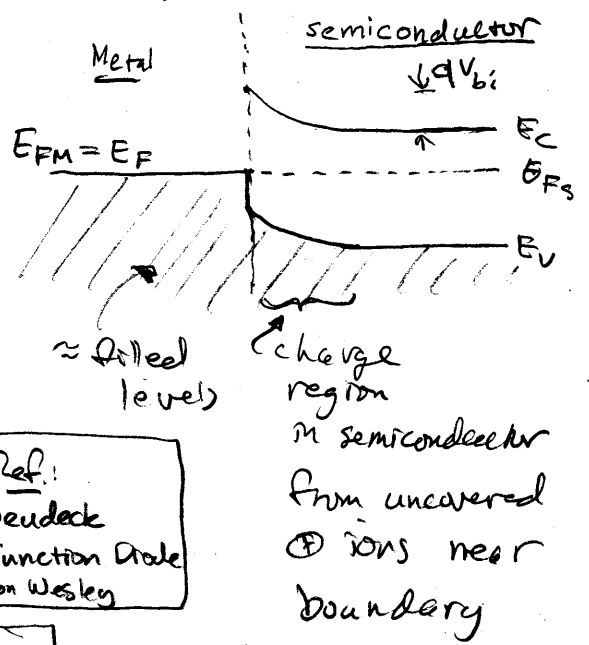 semiconductor
Metal
qVbi
EC
EFM = EF
EFs
EV
≈ filled
levels
charge
region
in semiconductor
from uncovered
⊕ ions near
boundary
Ref.:
eudeck
unction Diode
on Wesley